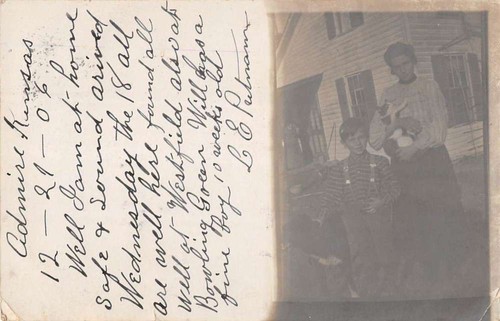 Admire Kansas
12 - 29 - 06
Well I am at home
safe & Sound arived
Wednesday the 18 all
are well here found all
well at Westfield also at
Bowling Green Will has a
fine boy 10 weeks old
L E Putnam